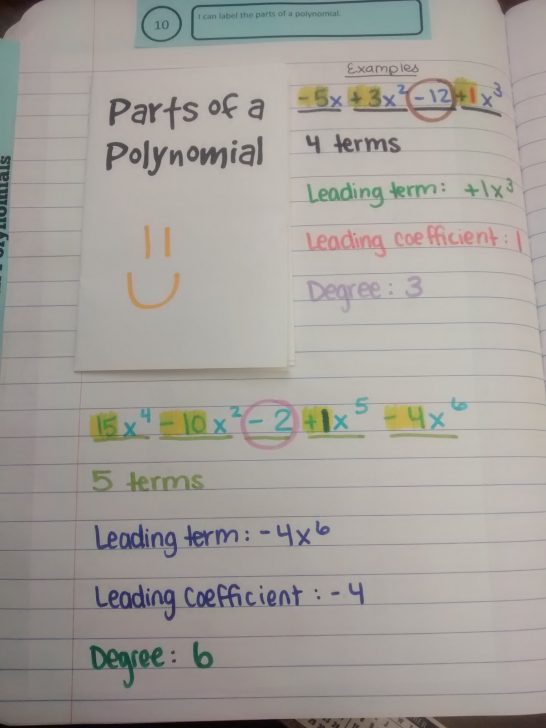 10
I can label the parts of a polynomial.
Parts of a
Polynomial
Examples
-5x +3x² -12 +1x³
4 terms
Leading term: +1x³
Leading coefficient: 1
Degree: 3
15x⁴ -10x² -2 +1x⁵ -4x⁶
5 terms
Leading term: -4x⁶
Leading Coefficient: -4
Degree: 6